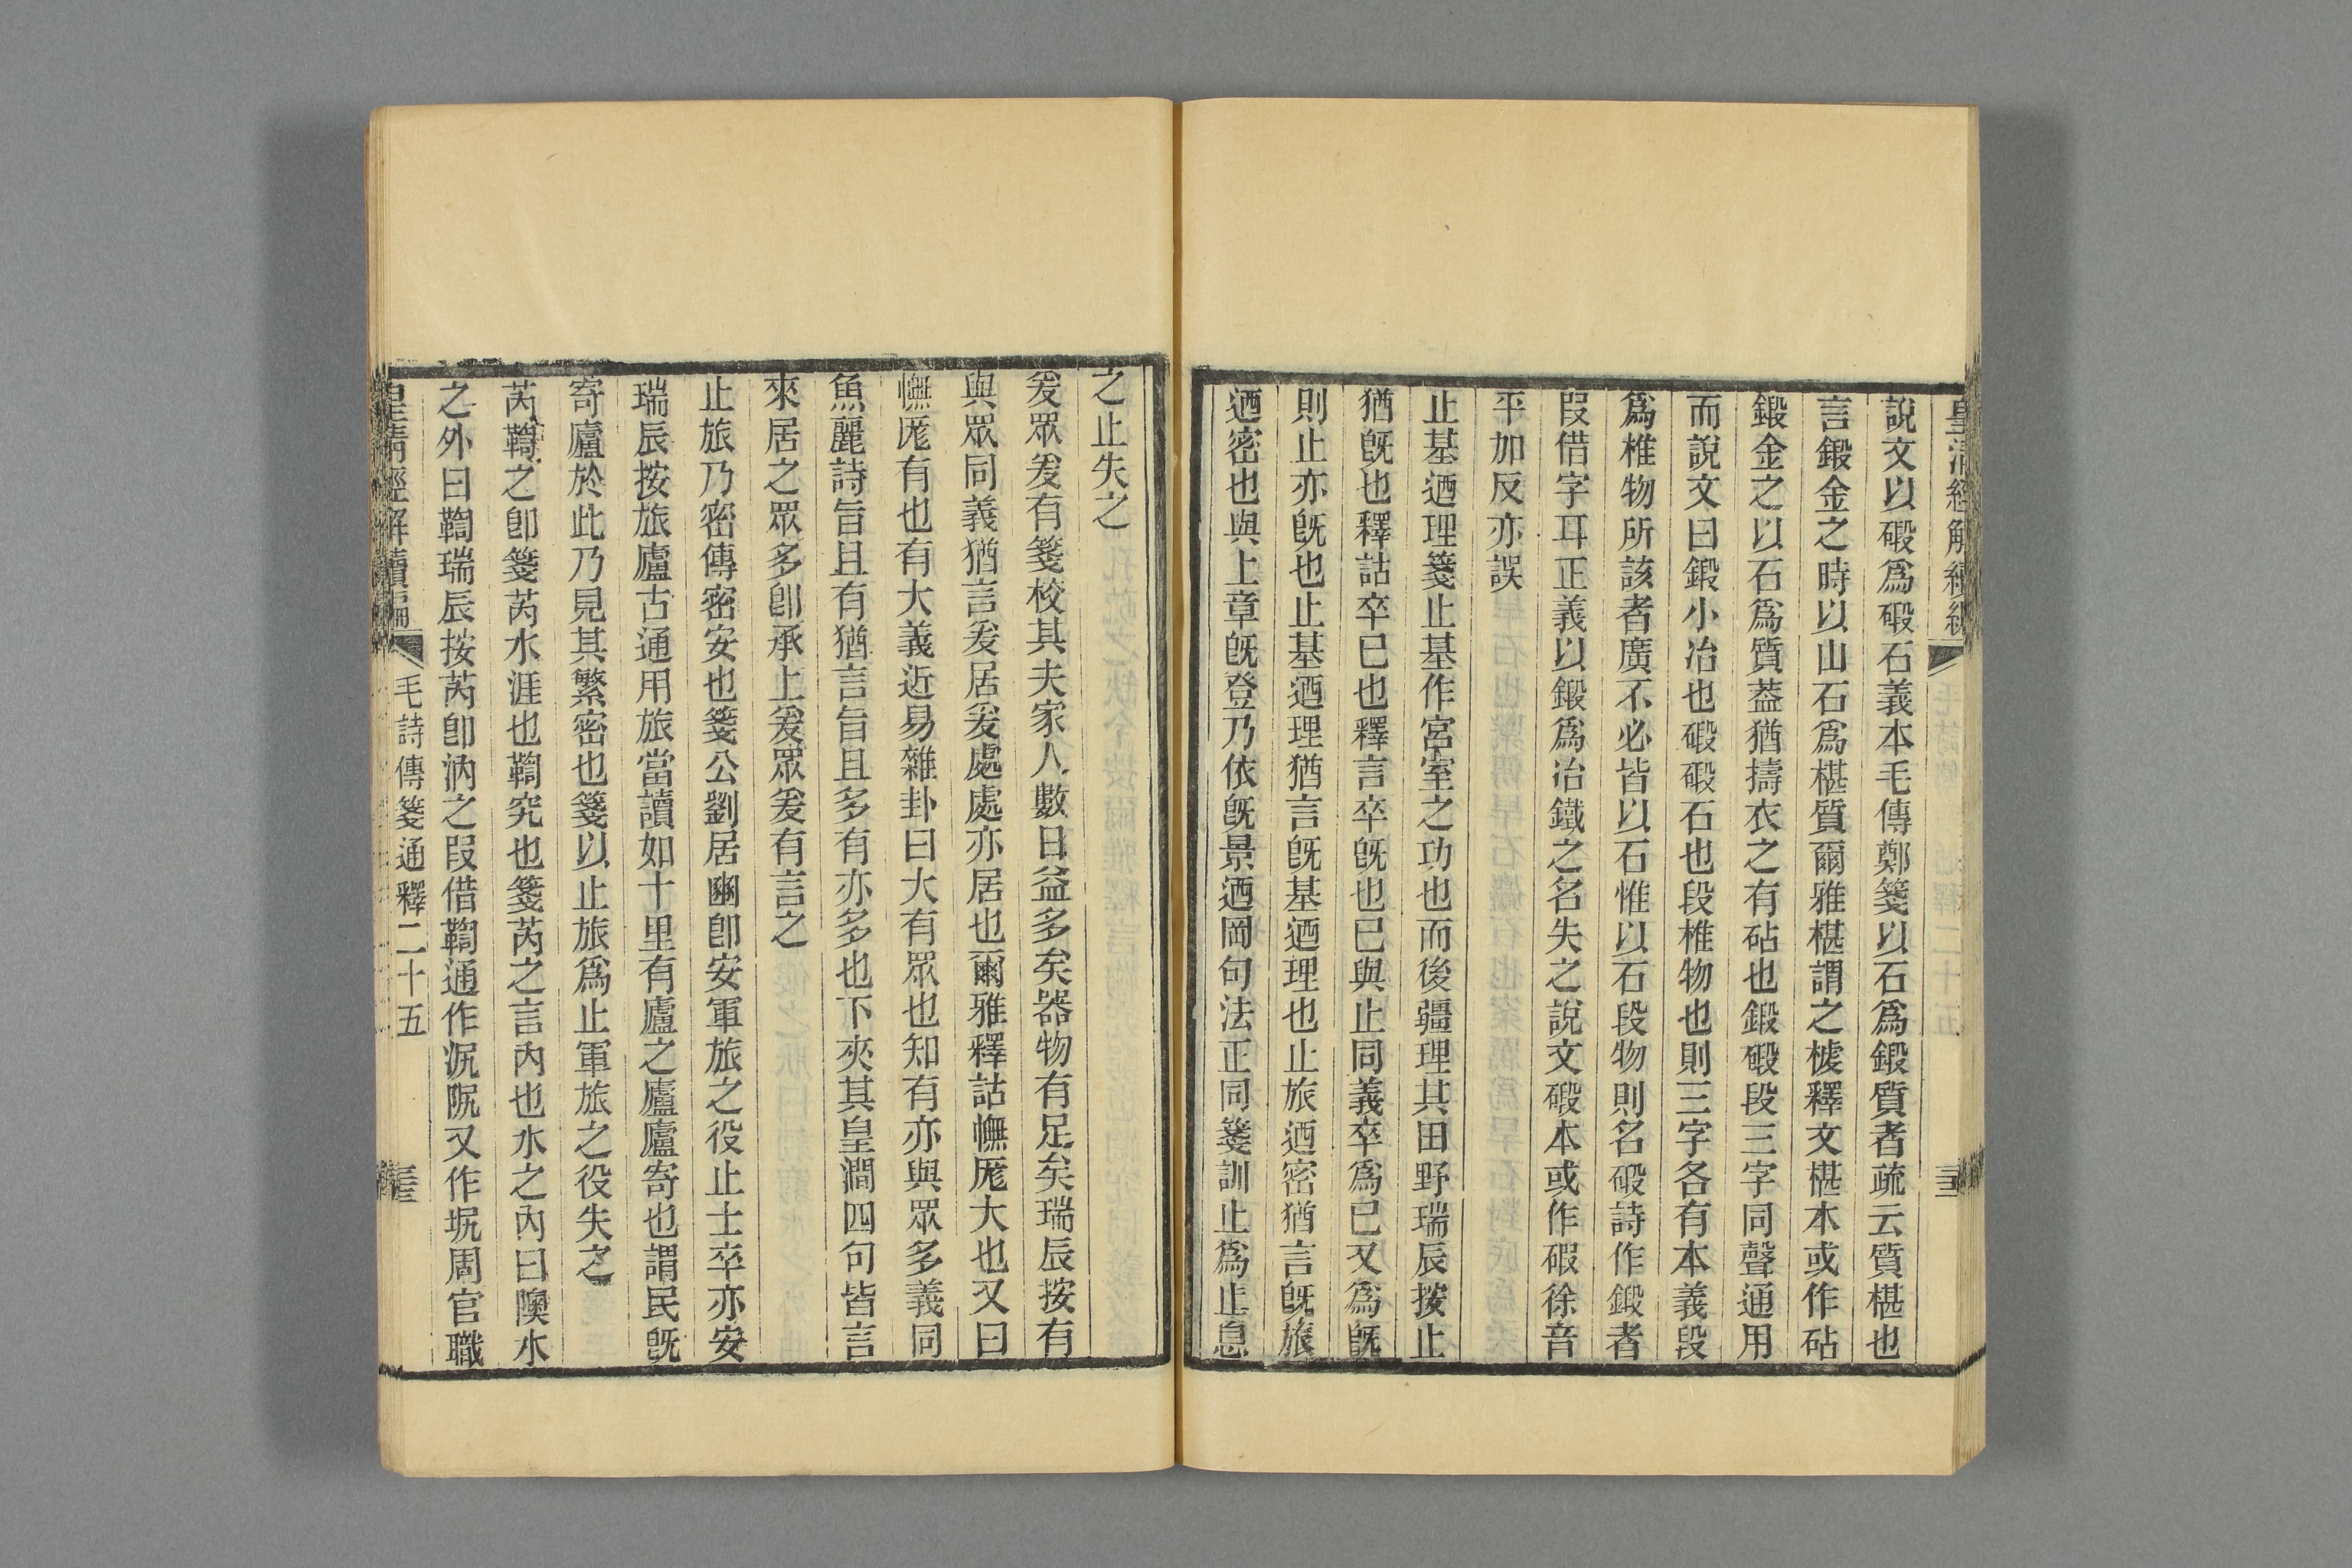 皇清經解續編
說文以碫爲碫石義本毛傳鄭箋以石爲鍛質者疏云質椹也
言鍛金之時以山石爲椹質爾雅椹謂之榩釋文椹本或作砧
鍛金之以石爲質葢猶擣衣之有砧也鍛碫段三字同聲通用
而說文曰鍛小冶也碫碫石也段椎物也則三字各有本義段
爲椎物所該者廣不必皆以石惟以石段物則名碫詩作鍛者
叚借字耳正義以鍛爲冶鐵之名失之說文碫本或作碬徐音
平加反亦誤
止基迺理箋止基作宮室之功也而後疆理其田野瑞辰按止
猶旣也釋詁卒已也釋言卒旣也已與止同義卒爲已又爲旣
則止亦旣也止基迺理猶言旣基迺理也止旅迺密猶言旣旅
迺密也與上章旣登乃依旣景迺岡句法正同箋訓止爲止息
之止失之
爰眾爰有箋校其夫家人數日益多矣器物有足矣瑞辰按有
與眾同義猶言爰居爰處處亦居也爾雅釋詁幠厖大也又曰
幠厖有也有大義近易雜卦曰大有眾也知有亦與眾多義同
魚麗詩旨且有猶言旨且多有亦多也下夾其皇澗四句皆言
來居之眾多卽承上爰眾爰有言之
止旅乃密傳密安也箋公劉居豳卽安軍旅之役止士卒亦安
瑞辰按旅廬古通用旅當讀如十里有廬之廬廬寄也謂民旣
寄廬於此乃見其繁密也箋以止旅爲止軍旅之役失之
芮鞫之卽箋芮水涯也鞫究也箋芮之言內也水之內曰隩水
之外曰鞫瑞辰按芮卽汭之叚借鞫通作泦阮又作坭周官職
皇清經解續編
毛詩傳箋通釋二十五